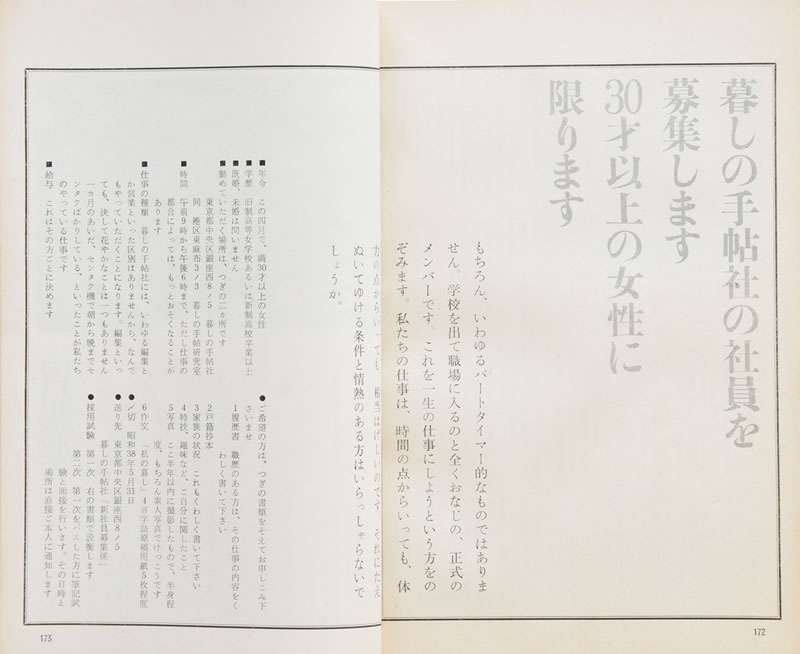 暮しの手帖社の社員を
募集します
30才以上の女性に
限ります
もちろん、いわゆるパートタイマー的なものではありま
せん。学校を出て職場に入るのと全くおなじの、正式の
メンバーです。これを一生の仕事にしようという方をの
ぞみます。私たちの仕事は、時間の点からいっても、休
力の点からいっても、相当はげしいのです。それにたえ
ぬいてゆける条件と情熱のある方はいらっしゃらないで
しょうか。
172
■年令　この四月で、満30才以上の女性
■学歴　旧制高等女学校あるいは新制高校卒業以上
■既婚、未婚は問いません
■勤めていただく場所は、つぎの二ヵ所です
東京都中央区銀座西8ノ5　暮しの手帖社
同　港区東麻布3ノ3　暮しの手帖研究室
■時間　午前9時から午後6時まで、ただし仕事の
都合によっては、もっとおそくなることが
あります
■仕事の種類　暮しの手帖社には、いわゆる編集と
か営業といった区別はありませんから、なんで
もやっていただくことになります。編集といっ
ても、決して花やかなことは一つもありません
一ヵ月のあいだ、センタク機で朝から晩までセ
ンタクばかりしている、といったことが私たち
のやっている仕事です
■給与　これはその方ごとに決めます
●ご希望の方は、つぎの書類をそえてお申しこみ下
さいませ
1 履歴書　職歴のある方は、その仕事の内容をく
わしく書いて下さい
2 戸籍抄本
3 家族の状況　これもくわしく書いて下さい
4 特技、趣味など、ご自分に関したこと
5 写真　ここ半年以内に撮影したもので、半身程
度、もちろん素人写真でけっこうです
6 作文　「私の暮し」4百字詰原稿用紙5枚程度
●〆切　昭和38年5月31日
●送り先　東京都中央区銀座西8ノ5
暮しの手帖社「新社員募集係」
●採用試験　第一次　右の書類で詮衡します
第二次　第一次をパスした方に筆記試
験と面接を行います。その日時と
場所は直接ご本人に通知します
173